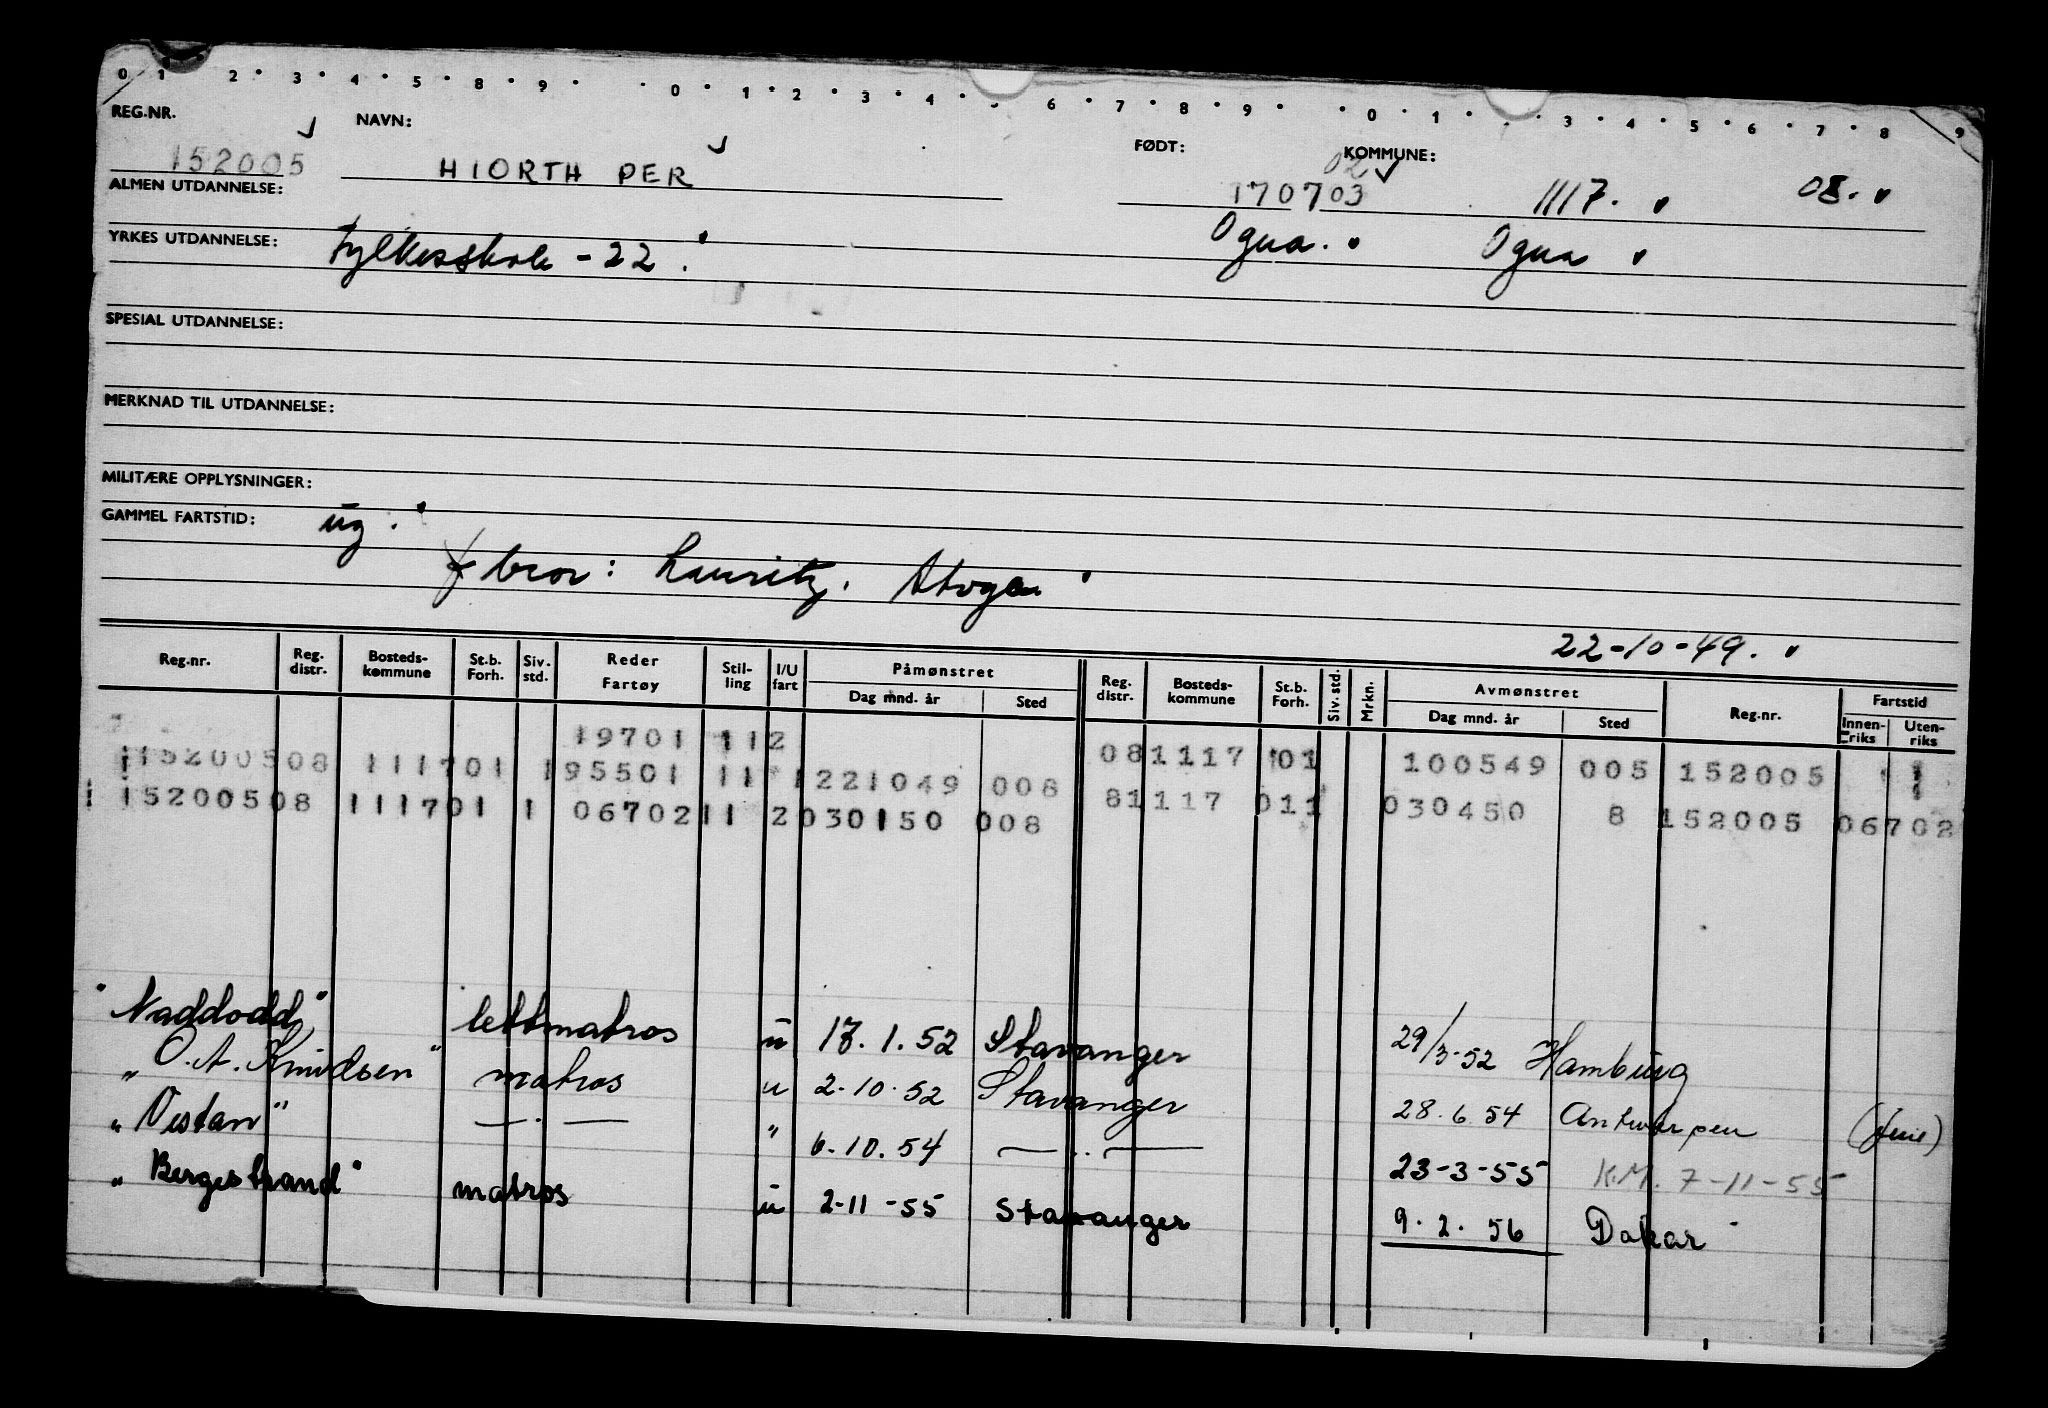 0 1 2 3 4 5 8 9 0 1 2 3 4 6 7 8 9 0 1 3 4 5 6 7 8 9
REG.NR. NAVN: FØDT: KOMMUNE:
152005 HIORTH PER 170703 02 1117. 08.
ALMEN UTDANNELSE:
YRKES UTDANNELSE: Fylkesskole - 22. Ogna. Ogna
SPESIAL UTDANNELSE:
MERKNAD TIL UTDANNELSE:
MILITÆRE OPPLYSNINGER:
GAMMEL FARTSTID: ug.
bror: Lauritz.
22-10-49.
Reg.nr. Reg. distr. Bosteds-kommune St.b. Forh. Siv. std. Reder Fartøy Stil-ling I/U fart Påmønstret Dag mnd. år Sted Reg. distr. Bosteds-kommune St.b. Forh. Siv. std. Mrkn. Avmønstret Dag mnd. år Sted Reg.nr. Fartstid Innen-riks Uten-riks
19701 112 081117 01 100549 005 152005
115200508 111701 195501 11 1221049 008 81117 011 030450 8 152005 06702
15200508 111701 1 06702 11 2030150 008
"Naddodd" lettmatros u 17.1.52 Stavanger 29/3-52 Hamburg
"O.A. Knudsen" matros u 2-10-52 Stavanger 28.6.54 Antwerpen
"Vestan" — . — " 6.10.54 — .. — 23-3-55 K.M. 7-11-55
"Bergestrand" matros u 2-11-55 Stavanger 9.2.56 Dakar